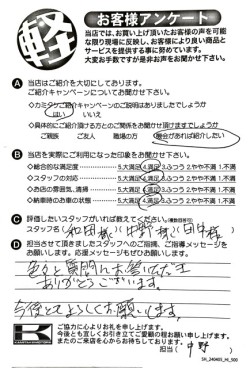 軽
お客様アンケート
当店では、お買い上げ頂いたお客様の声を可能
な限り現場に反映し、お客様により良い商品と
サービスを提供する事に努めています。
大変お手数ですが是非お声をお聞かせ下さい。
A 当店はご紹介を大切にしております。
ご紹介キャンペーンについてお聞かせ下さい。
◇カミタケご紹介キャンペーンのご説明はありましたでしょうか
はい いいえ
◇具体的にご紹介頂ける方とのご関係をお聞かせ頂けますでしょうか
ご親族 ご友人 職場の方 機会があれば紹介したい
B 当店を実際にご利用になった印象をお聞かせ下さい。
◇総合的な満足度 5.大満足 4.満足 3.ふつう 2.やや不満 1.不満
◇スタッフの対応 5.大満足 4.満足 3.ふつう 2.やや不満 1.不満
◇お店の雰囲気、清掃 5.大満足 4.満足 3.ふつう 2.やや不満 1.不満
◇納車時のお車の状態 5.大満足 4.満足 3.ふつう 2.やや不満 1.不満
C 評価したいスタッフがいれば教えてください。(複数回答可)
スタッフ名(和田様)(中野様)(田中様)
D 担当させて頂きましたスタッフへのご指摘、ご指導メッセージを
お願いします。応援メッセージもぜひお願いします。
色々と質問にお答え頂きまして
ありがとうございます。
今後とてよろしくお願いします。
K
ご協力に心よりお礼を申し上げます。
今後とも宜しくお引き立てご愛顧の程お願い申し上げます。
またのご来店を心からお待ちしております。
担当(中野)
SH_240403_HI_500